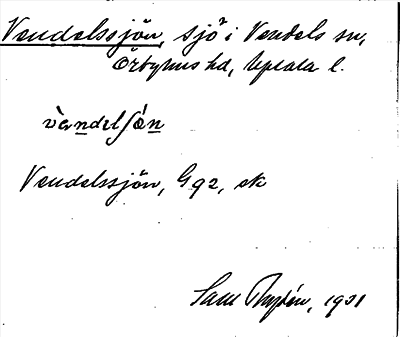 Vendelssjön, sjö i Vendels sn,
Örbyhus hd, Upsala l.
vèndelʃön
Vendelssjön, G 92, sk
Sam 1931